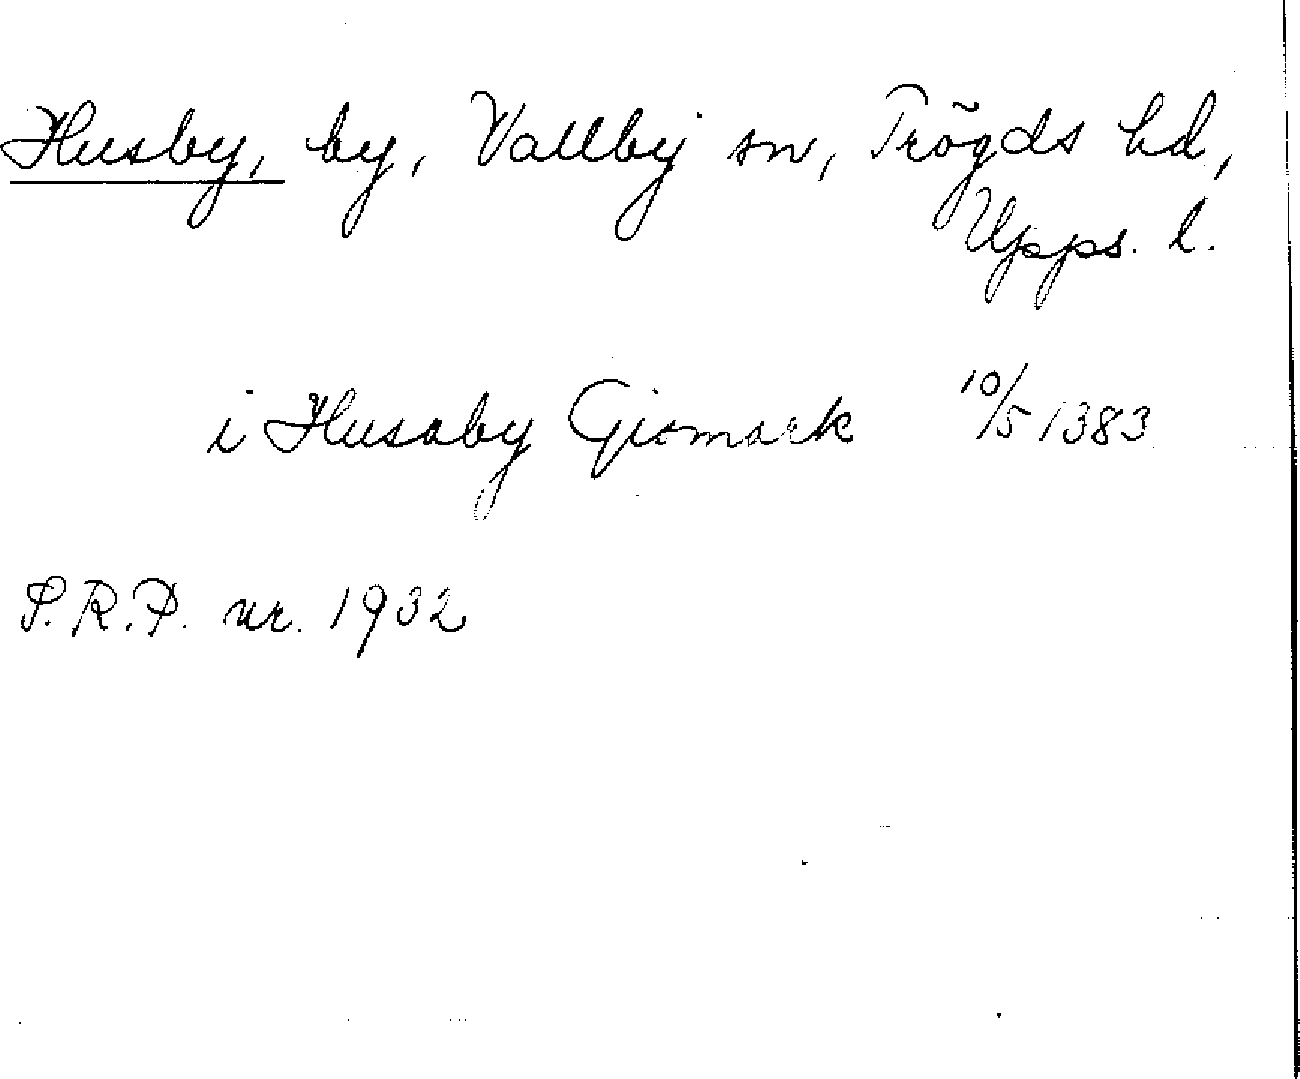 Husby, by, Vallby sn, Trögds hd,
Upps. l.
i Husaby Giomark 10/5 1383
S.R.P. nr. 1932